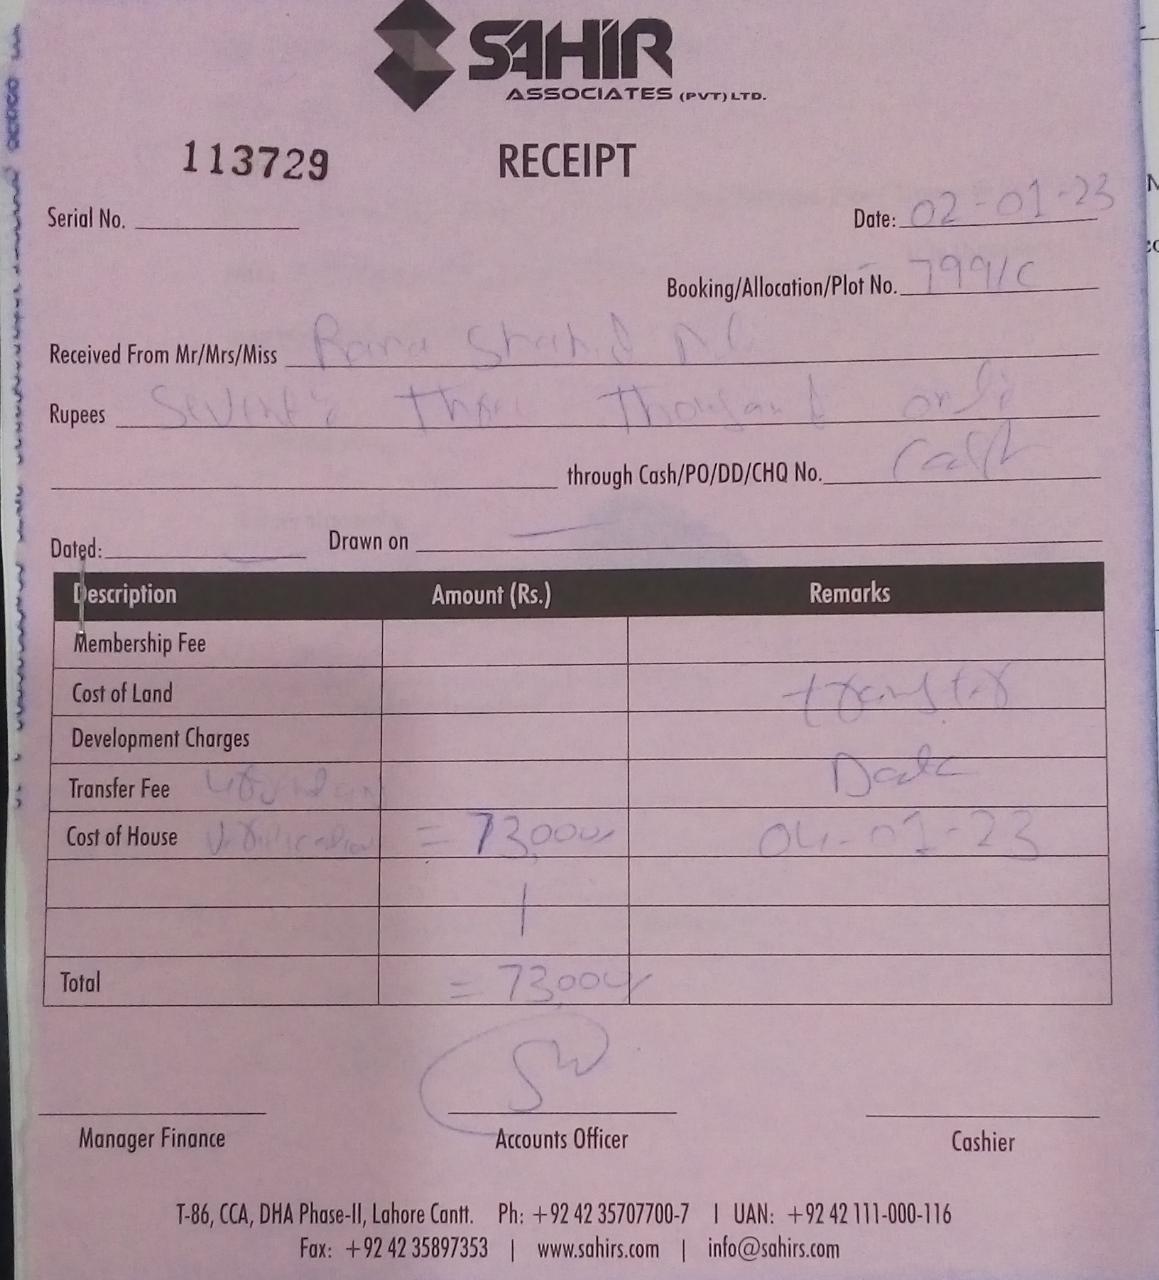 SAHIR
ASSOCIATES (PVT) LTD.
113729 RECEIPT
Serial No. Date: 02-01-23
Booking/Allocation/Plot No. 799/C
Received From Mr/Mrs/Miss Rana Shahid
Rupees Seventy Three Thousand only
through Cash/PO/DD/CHQ No. Cash
Dated: Drawn on
Description Amount (Rs.) Remarks
Membership Fee
Cost of Land transfer
Development Charges
Transfer Fee Date
Cost of House Verification = 73,000/ 04-01-23
Total = 73,000/
Manager Finance Accounts Officer Cashier
T-86, CCA, DHA Phase-II, Lahore Cantt. Ph: +92 42 35707700-7 | UAN: +92 42 111-000-116
Fax: +92 42 35897353 | www.sahirs.com | info@sahirs.com